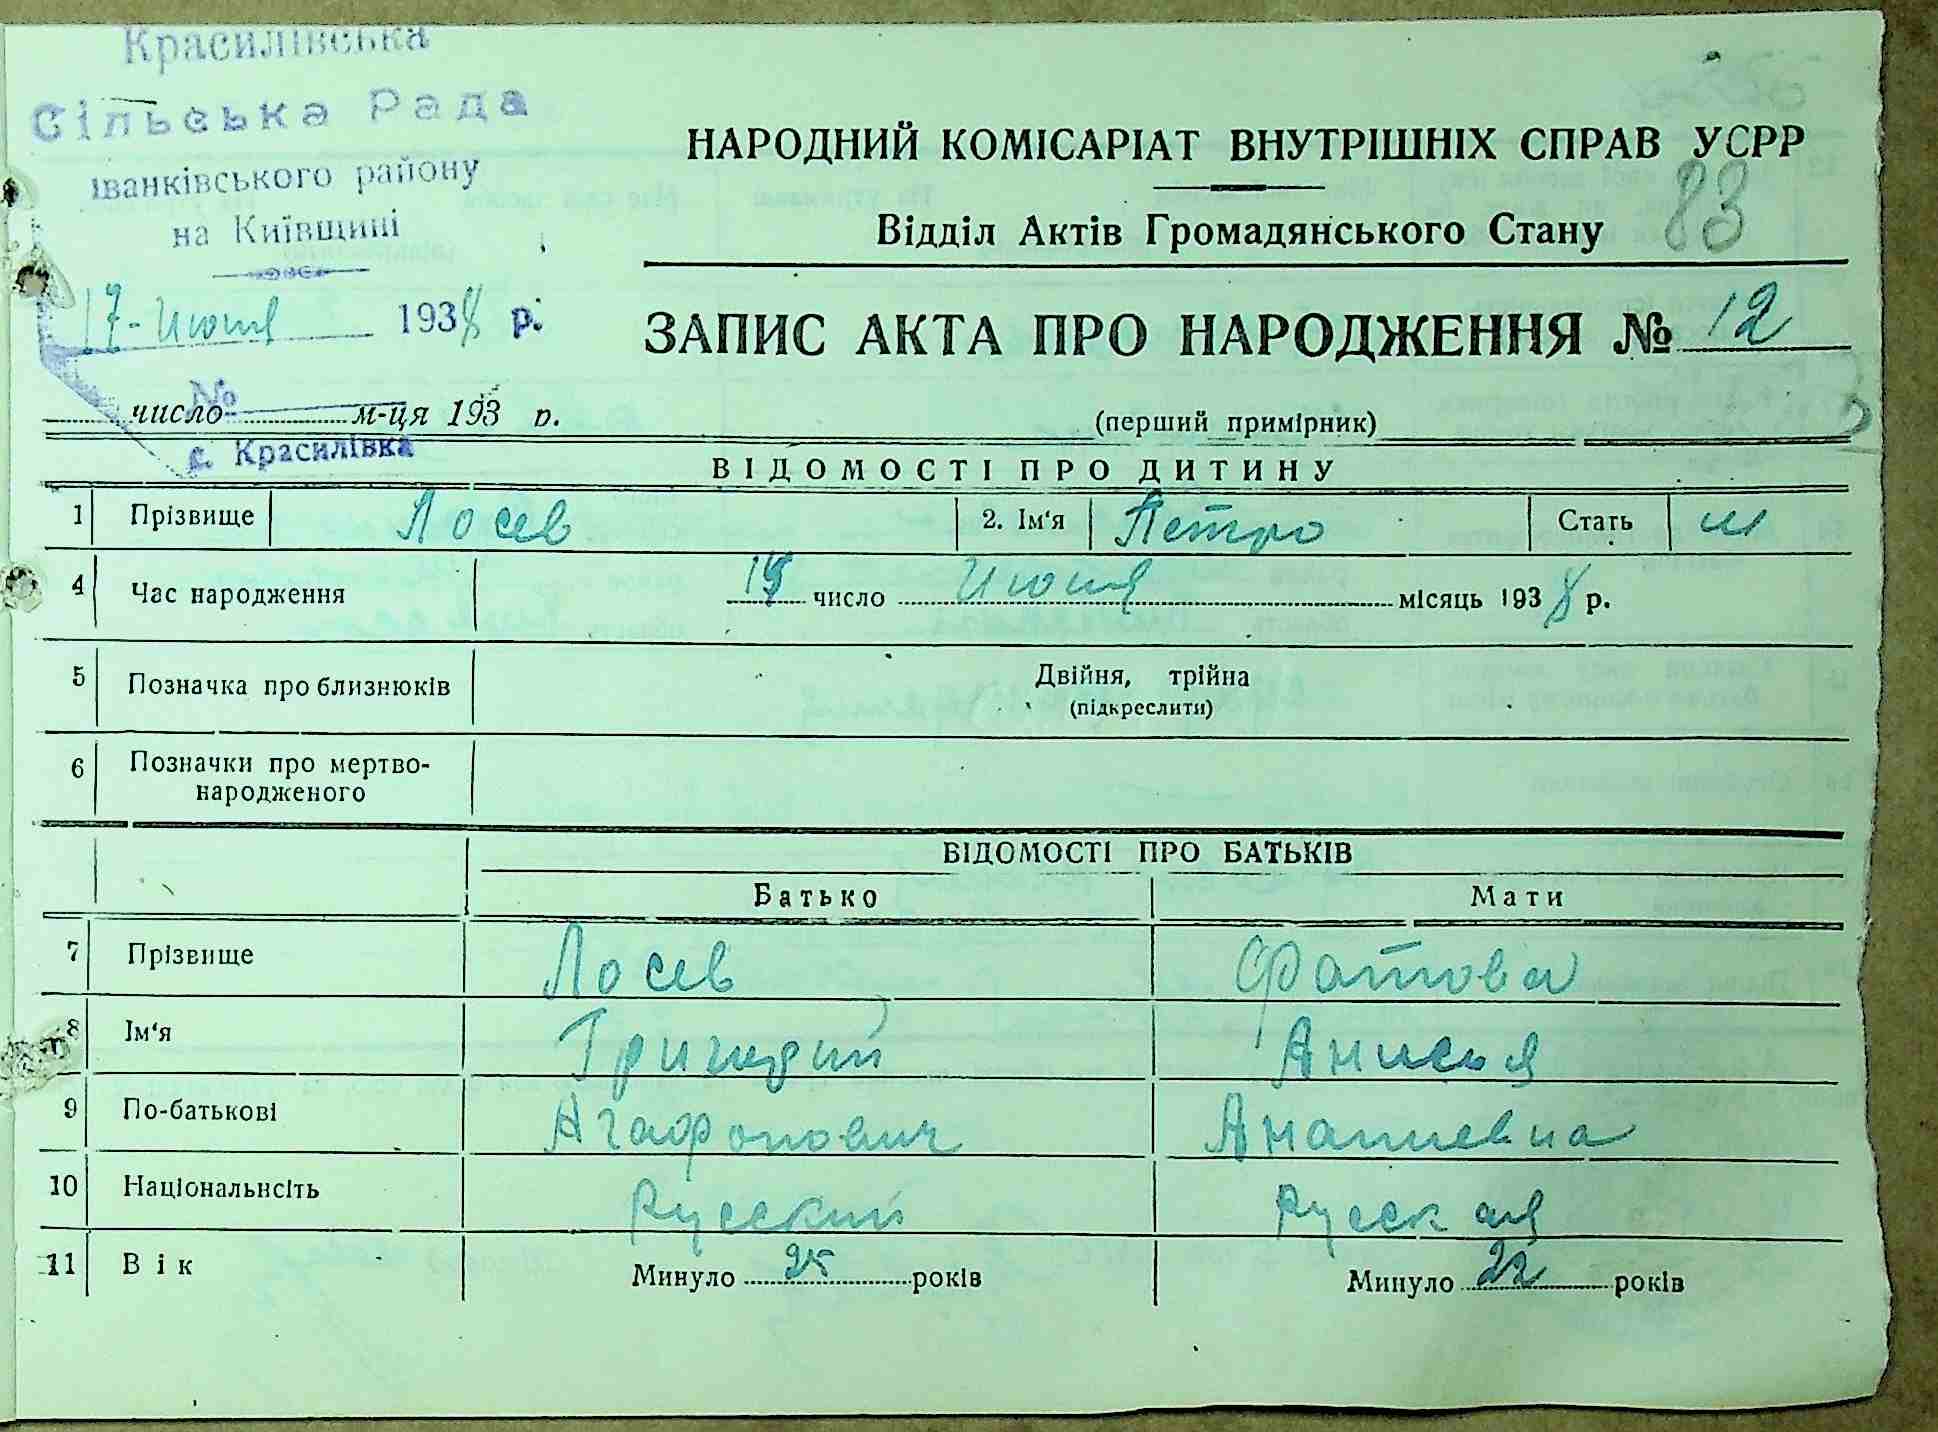 Красилівська
Сільська Рада
Іванківського району
на Київщині
17-Июня 1938 р.
№
с. Красилівка
НАРОДНИЙ КОМІСАРІАТ ВНУТРІШНІХ СПРАВ УСРР
83
Відділ Актів Громадянського Стану
ЗАПИС АКТА ПРО НАРОДЖЕННЯ № 12
число м-ця 193 р.
(перший примірник)
ВІДОМОСТІ ПРО ДИТИНУ
1 Прізвище Лосев 2. Ім'я Петро Стать м
4 Час народження число Июня місяць 1938 р.
5 Позначка про близнюків Двійня, трійна
(підкреслити)
6 Позначки про мертво-
народженого
ВІДОМОСТІ ПРО БАТЬКІВ
Батько Мати
7 Прізвище Лосев Фатова
8 Ім'я Григорий Анисья
9 По-батькові Агафонович Ананиевна
10 Національнсіть Русский Русская
11 Вік Минуло 25 років Минуло 22 років